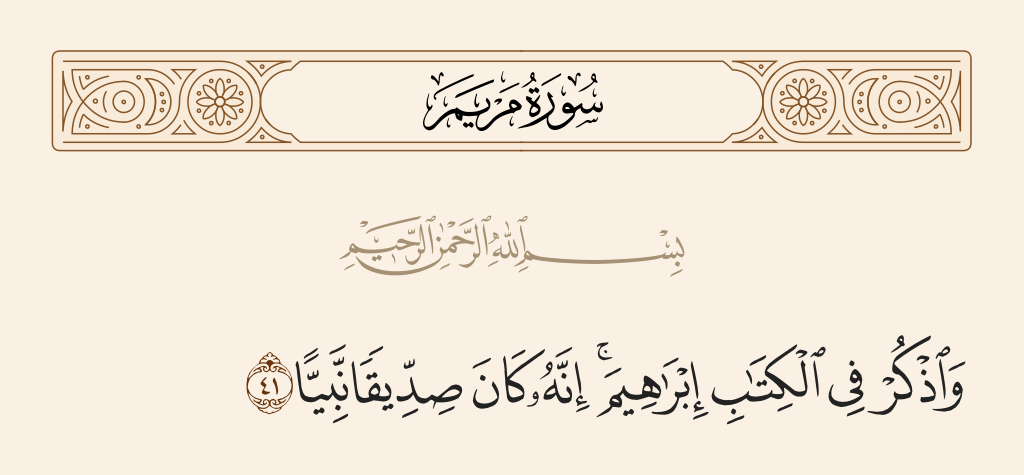 سُورَةُ مَرْيَمَ
بِسْمِ ٱللَّهِ ٱلرَّحْمَٰنِ ٱلرَّحِيمِ
وَٱذْكُرْ فِى ٱلْكِتَـٰبِ إِبْرَٰهِيمَ ۚ إِنَّهُۥ كَانَ صِدِّيقًا نَّبِيًّا ٤١